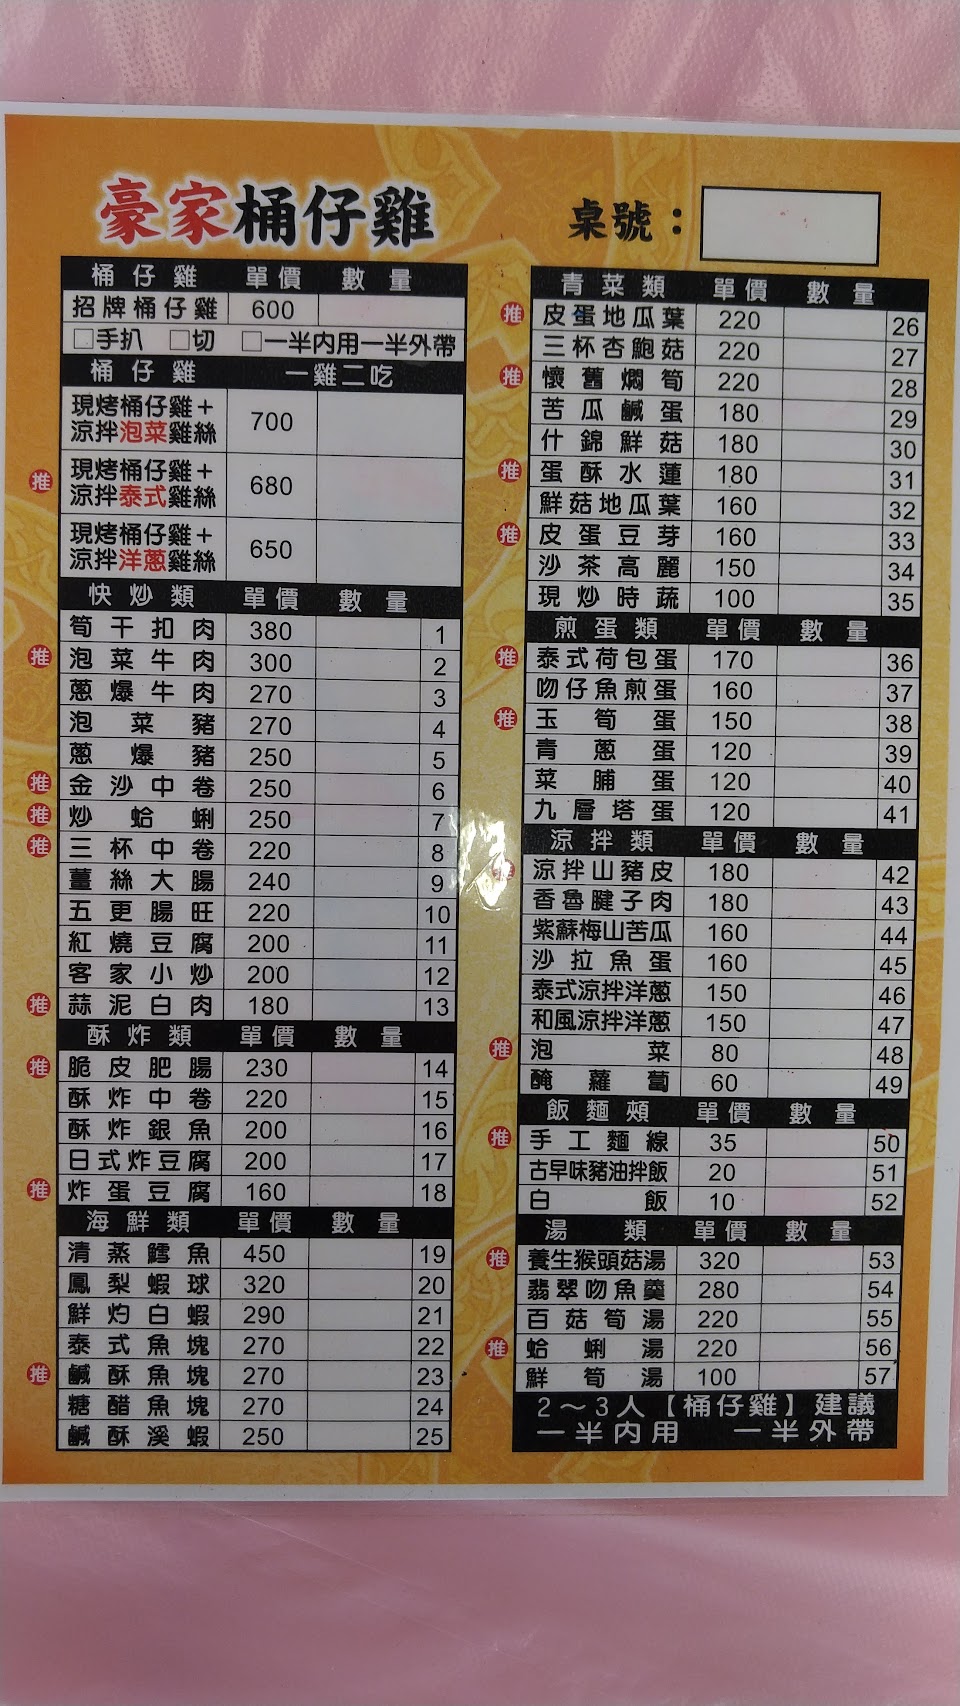 豪家桶仔雞
桌號：
桶仔雞 單價 數量
招牌桶仔雞 600
□手扒 □切 □一半內用一半外帶
桶仔雞 一雞二吃
現烤桶仔雞＋
涼拌泡菜雞絲 700
推 現烤桶仔雞＋
涼拌泰式雞絲 680
現烤桶仔雞＋
涼拌洋蔥雞絲 650
快炒類 單價 數量
筍干扣肉 380 1
推 泡菜牛肉 300 2
蔥爆牛肉 270 3
泡菜豬 270 4
蔥爆豬 250 5
推 金沙中卷 250 6
推 炒蛤蜊 250 7
推 三杯中卷 220 8
薑絲大腸 240 9
五更腸旺 220 10
紅燒豆腐 200 11
客家小炒 200 12
推 蒜泥白肉 180 13
酥炸類 單價 數量
推 脆皮肥腸 230 14
酥炸中卷 220 15
酥炸銀魚 200 16
日式炸豆腐 200 17
推 炸蛋豆腐 160 18
海鮮類 單價 數量
清蒸鱈魚 450 19
鳳梨蝦球 320 20
鮮灼白蝦 290 21
泰式魚塊 270 22
推 鹹酥魚塊 270 23
糖醋魚塊 270 24
鹹酥溪蝦 250 25
青菜類 單價 數量
推 皮蛋地瓜葉 220 26
三杯杏鮑菇 220 27
推 懷舊燜筍 220 28
苦瓜鹹蛋 180 29
什錦鮮菇 180 30
推 蛋酥水蓮 180 31
鮮菇地瓜葉 160 32
推 皮蛋豆芽 160 33
沙茶高麗 150 34
現炒時蔬 100 35
煎蛋類 單價 數量
推 泰式荷包蛋 170 36
吻仔魚煎蛋 160 37
推 玉筍蛋 150 38
青蔥蛋 120 39
菜脯蛋 120 40
九層塔蛋 120 41
涼拌類 單價 數量
推 涼拌山豬皮 180 42
香魯腱子肉 180 43
紫蘇梅山苦瓜 160 44
沙拉魚蛋 160 45
泰式涼拌洋蔥 150 46
和風涼拌洋蔥 150 47
推 泡菜 80 48
醃蘿蔔 60 49
飯麵類 單價 數量
推 手工麵線 35 50
古早味豬油拌飯 20 51
白飯 10 52
湯類 單價 數量
推 養生猴頭菇湯 320 53
翡翠吻魚羹 280 54
百菇筍湯 220 55
推 蛤蜊湯 220 56
鮮筍湯 100 57
2～3人【桶仔雞】建議
一半內用 一半外帶